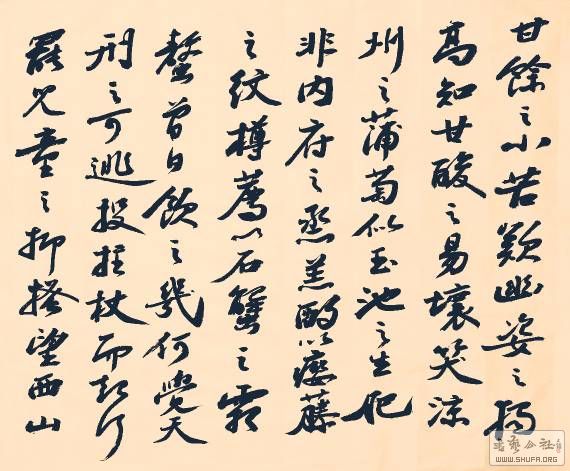 甘餘之小苦歎幽姿之獨
高知甘酸之易壞笑涼
州之蒲萄似玉池之生肥
非內府之蒸羔酌以癭藤
之紋樽薦以石蟹之霜
螯曾日飲之幾何覺天
刑之可逃投拄杖而起行
罷兒童之抑搔望西山
書藝公社
WWW.SHUFA.ORG